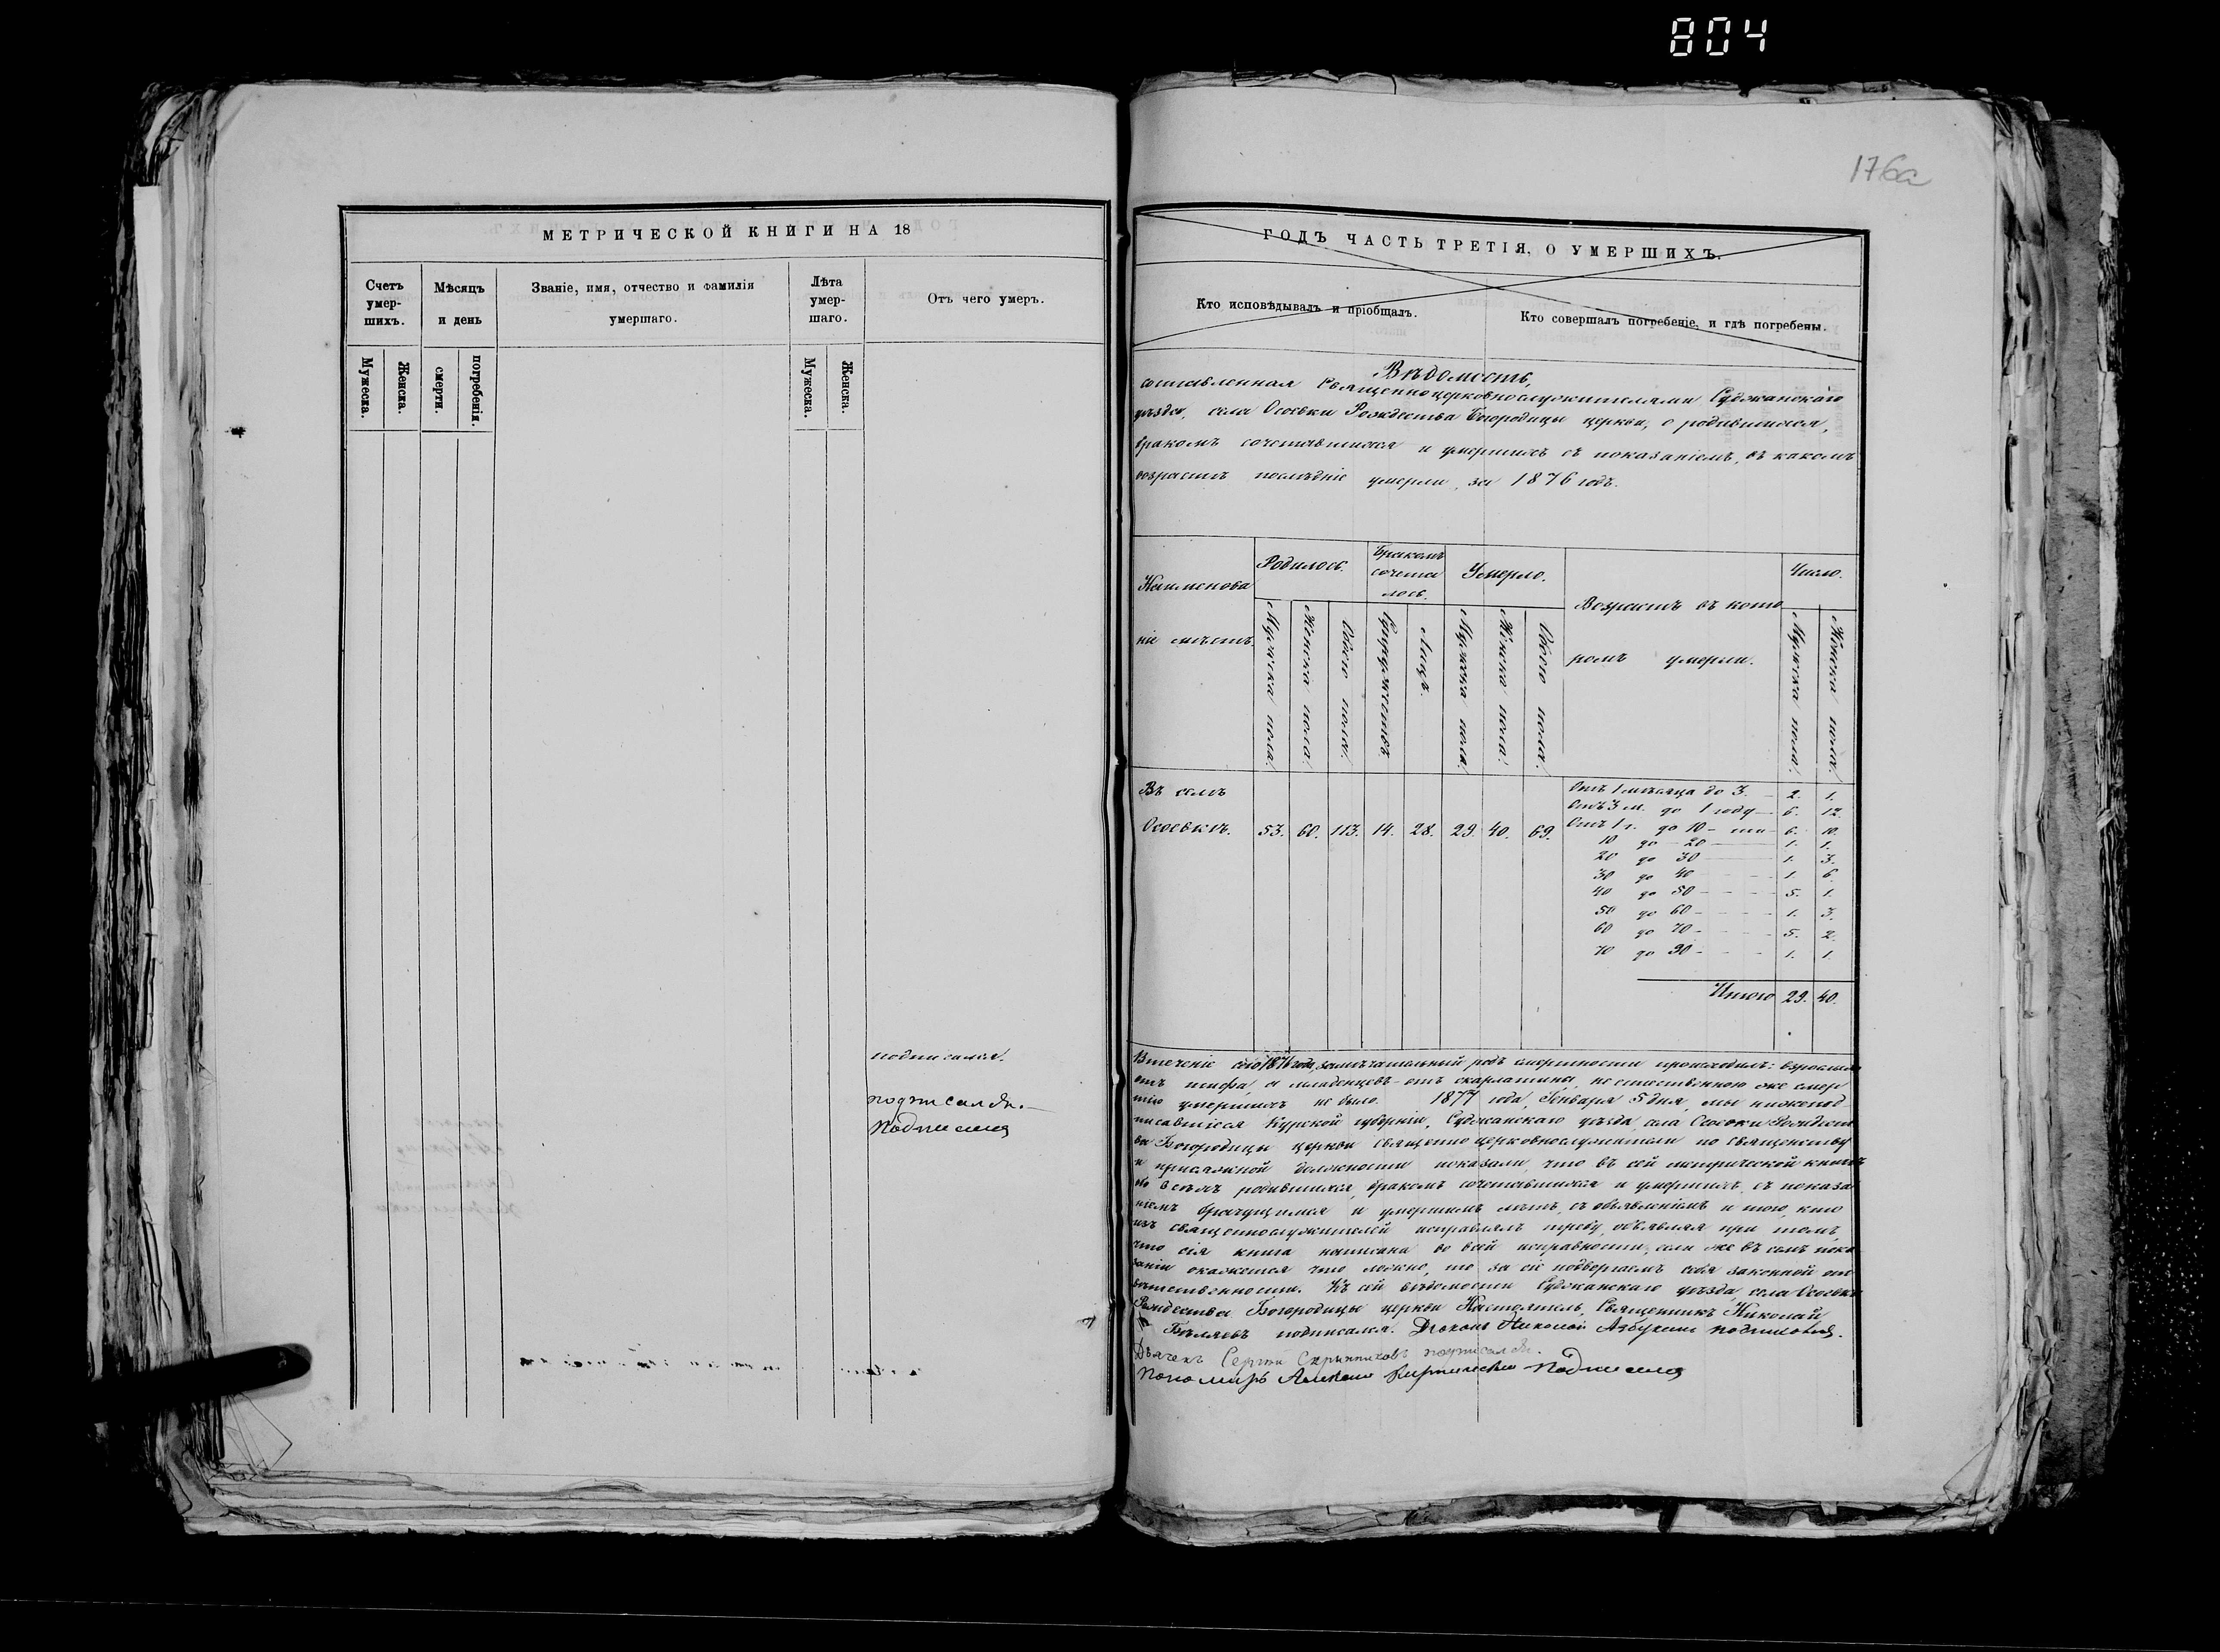 804
176а
МЕТРИЧЕСКОЙ КНИГИ НА 18
Счетъ умер-шихъ.
Мѣсяцъ и день
Званіе, имя, отчество и фамилія умершаго.
Лѣта умер-шаго.
Отъ чего умеръ.
Мужеска.
Женска.
смерти.
погребенія.
Мужеска.
Женска.
подписался.
подписался.
Подписался
ГОДЪ ЧАСТЬ ТРЕТІЯ, О УМЕРШИХЪ.
Кто исповѣдывалъ и пріобщалъ.
Кто совершалъ погребеніе, и гдѣ погребены.
Вѣдомость,
составленная Священноцерковнослужителями Суджанскаго
уѣзда, села Осоевки Рождества Богородицы церкви, о родившихся,
бракомъ сочетавшихся и умершихъ съ показаніемъ, въ какомъ
возрастѣ послѣдніе умерли, за 1876 годъ.
Наименова
ніе мѣстъ.
Родилось.
Бракомъ
сочета
лось.
Умерло.
Возрастъ въ кото
ромъ умерли.
Число.
Мужеска пола.
Женска пола.
Обоего пола.
Супружествъ
Лицъ.
Мужеска пола.
Женска пола.
Обоего пола.
Мужеска пола.
Женска пола.
Въ селѣ
Осоевкѣ. 53. 60. 113. 14. 28. 29. 40. 69.
Отъ 1 мѣсяца до 3. - 2. 1.
Отъ 3 м. до 1 году - 6. 12.
Отъ 1 г. до 10 - ти - 6. 10.
10 до - 20 - 1. 1.
20 до 30 - 1. 3.
30 до 40 - 1. 6.
40 до 50 - 5. 1.
50 до 60 - 1. 3.
60 до 70 - 5. 2.
70 до 90 - 1. 1.
Итого 29. 40.
Втеченіе сего 1876 года, замѣчательный родъ смертности происходилъ: взрослыхъ
отъ тифа, а младенцевъ - отъ скарлатины, неестественною же смер
тію умершихъ не было. 1877 года, Генваря 5 дня, мы нижепод-
писавшіеся Курской губерніи, Суджанскаго уѣзда, села Осоевки Рождест
ва Богородицы церкви священно церковнослужители по священству
и присяжной должности показали, что въ сей метрической книгѣ
о всѣхъ родившихся, бракомъ сочетавшихся и умершихъ, съ показа
ніемъ брачущимся и умершимъ лѣтъ, съ объявленіемъ и того, кто
изъ священнослужителей исправлялъ требу, объявляя при томъ,
что сія книга написана во всей исправности, если же въ семъ пока
заніи окажется что ложно, то за сіе подвергаемъ себя законной от
вѣтственности. Къ сей вѣдомости Суджанскаго уѣзда, села Осоевки
Рождества Богородицы церкви Настоятель, Священникъ Николай
Бѣляевъ подписался. Діаконъ Николай Азбукинъ подписался.
Дьячекъ Сергѣй Скрипниковъ подписался.
Пономарь Подписался